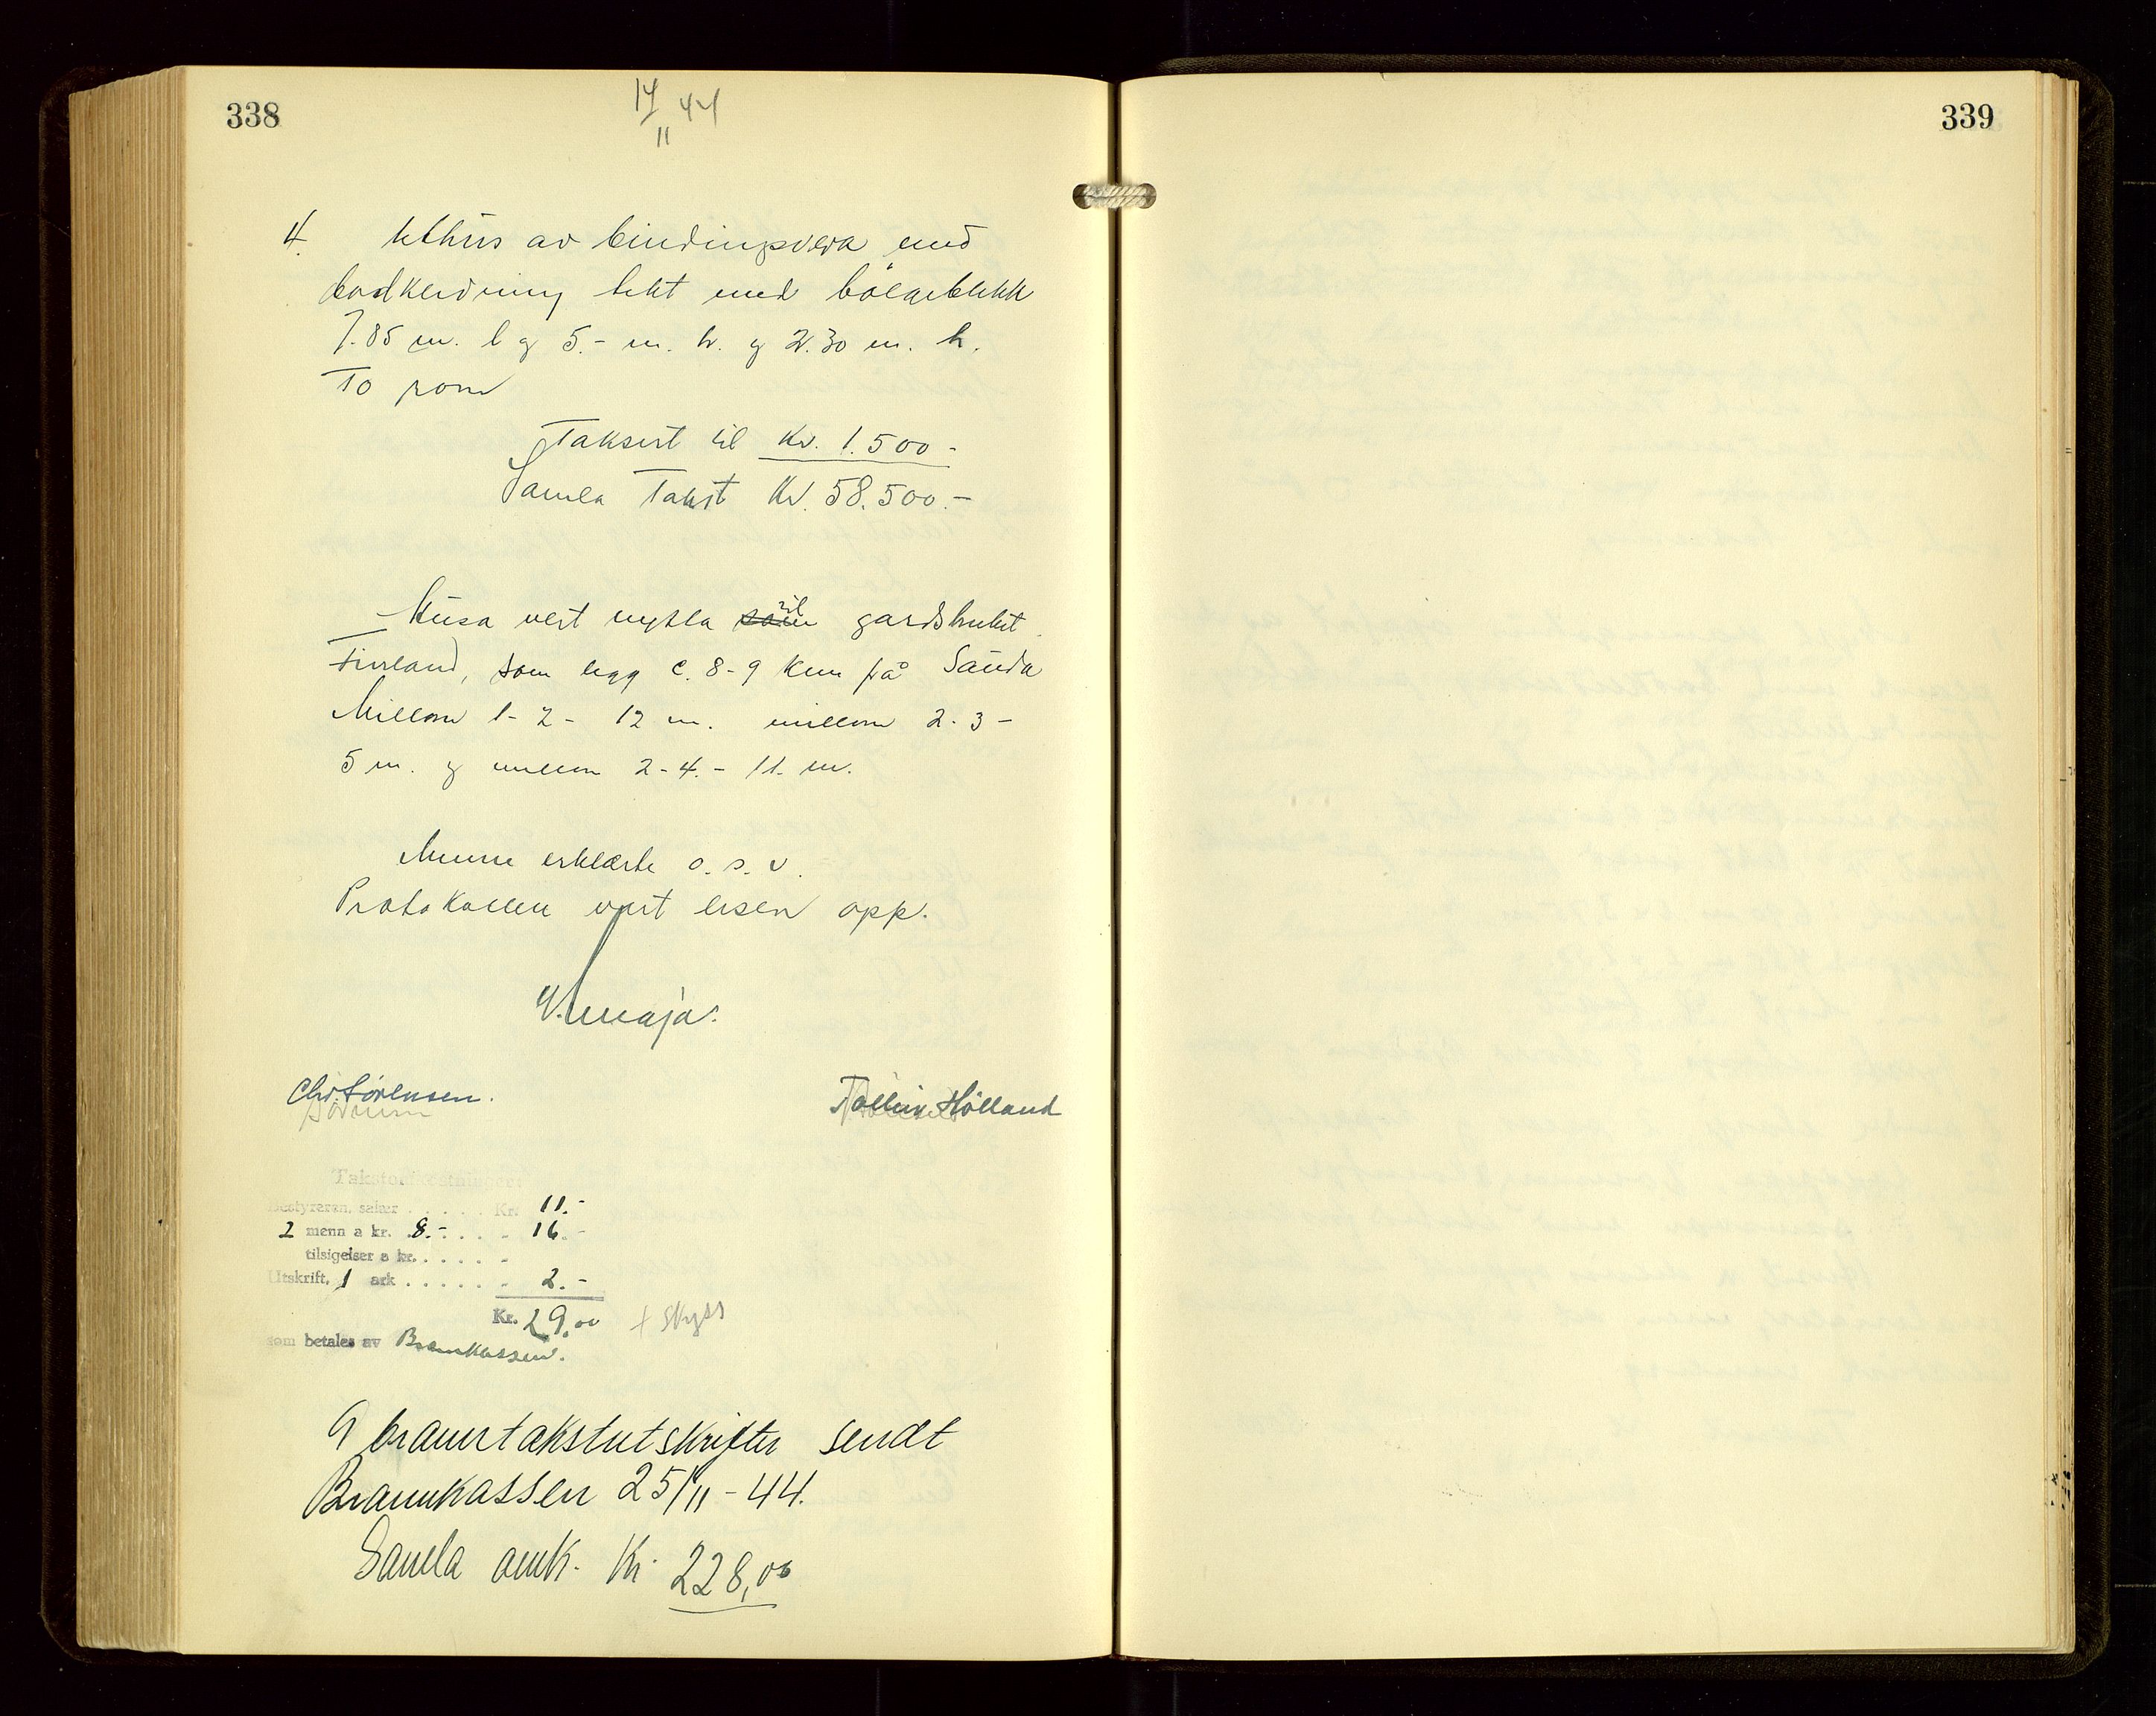 338
14/11 44
4. Uthus av bindingsverk med
bordkledning tekt med bölgeblekk
7.85 m. l og 5.- m. br. og 2.30 m. h.
To rom
Taksert til Kr. 1.500-
Samla Takst Kr. 58.500.-
Husa vert nytta til gardsbruket
som ligg c. 8-9 km på Sauda
Millom 1-2- 12 m. millom 2-3-
5 m. og millom 2-4.- 11. m.
Menne erklærte o.s.v.
Protokollen vart lesen opp.
Chr. Sörensen.
Tollein Hölland
Takstomkostninger:
Bestyreren, salær . . . . . Kr. 11.-
2 menn a kr. 8.- . . . . - 16.-
tilsigelser a kr. . . . . . -
Utskrift, 1 ark . . . . . . - 2.-
Kr. 29,00 + skyss
som betales av Brannkassen.
9 branntakstutskrifter sendt
Brannkassen 25/11-44.
Samla omk. Kr. 228,00
339